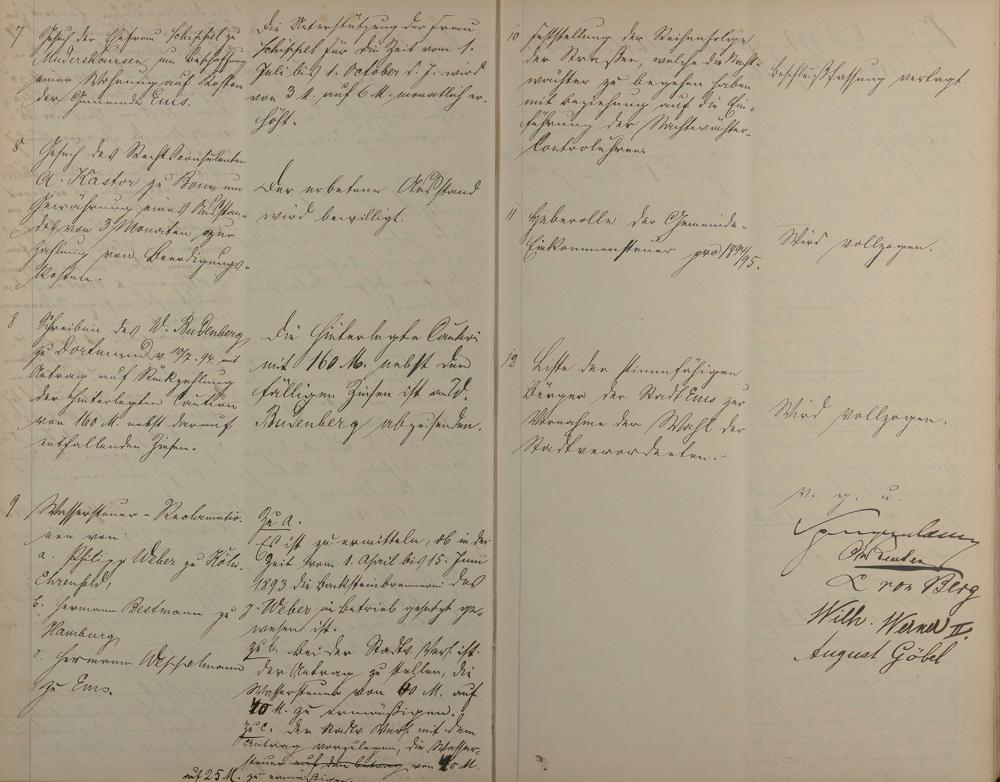 7
Gesuch der Ehefrau Schissel zu
Mudershausen um Beschaffung
einer Wohnung auf Kosten
der Gemeinde Ems.
Die Unterstützung der Frau
Schissel für die Zeit vom 1.
Juli bis 1. October d. J. wird
von 3 M. auf 6 M. monatlich er-
höht.
8
Gesuch des Rechtsconsulenten
A. Kastor zu Bonn um
Gewährung eines Ausstan-
des von 3 Monaten zur
Zahlung von Beerdigungs-
kosten.
Der erbetene Ausstand
wird bewilligt.
8
Schreiben des W. Budenberg
zu Dortmund v. 94 mit
Antrag auf Rückzahlung
der hinterlegten Caution
von 160 M. nebst darauf
entfallenden Zinsen.
Die hinterlegte Caution
mit 160 M. nebst den
fälligen Zinsen ist an d.
Budenberg abzusenden.
9
Wassersteuer-Reclamatio-
nen von:
a. Philipp Weber zu Köln-
Ehrenfeld,
b. Hermann Bestmann zu
Hamburg
c. Hermann
zu Ems.
Zu a.
Es ist zu ermitteln, ob in der
Zeit vom 1. April bis 15. Juni
1893 die Backsteinbrennerei des
p. Weber in Betrieb gesetzt ge-
wesen ist.
Zu b. bei der Stadtv. Vers. ist
der Antrag zu stellen, die
Wassersteuer von 60 M. auf
40 M. zu ermäßigen.
Zu c. der Stadtv. Vers. mit dem
Antrag vorzulegen, die Wasser-
steuer auf den Antrag von 40 M.
auf 25 M. zu ermäßigen.
10
Feststellung der Reihenfolge
der Straßen, welche die Nacht-
wächter zu begehen haben
mit Beziehung auf die Ein-
führung der Nachtwächter-
Controluhren.
Beschlußfassung vertagt
11
Heberolle der Gemeinde-
Einkommensteuer pro 1894/95.
Wird vollzogen.
12
Liste der stimmfähigen
Bürger der Stadt Ems zur
Vornahme der Wahl der
Stadtverordneten.
Wird vollzogen.
v. g. u.
Spangenberg
L von Berg
Wilh. Werner II.
August Göbel